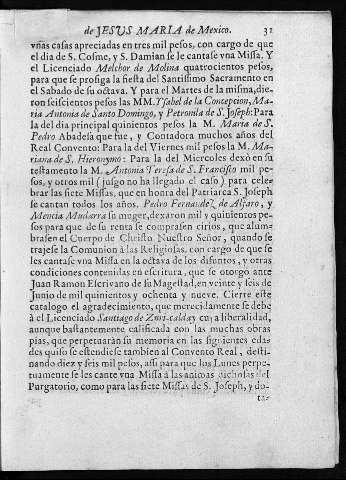 de JESUS MARIA de Mexico. 31
vñas casas apreciadas en tres mil pesos, con cargo de que
el dia de S. Cosme, y S. Damian se le cantase vna Missa. Y
el Licenciado Melchor de Molina quatrocientos pesos,
para que se prosiga la fiesta del Santissimo Sacramento en
el Sabado de su octava. Y para el Martes de la misma, die-
ron seiscientos pesos las MM. Ysabel de la Concepcion, Ma-
ria Antonia de Santo Domingo, y Petronila de S. Joseph: Para
la del dia principal quinientos pesos la M. Maria de S.
Pedro Abadesa que fue, y Contadora muchos años del
Real Convento: Para la del Viernes mil pesos la M. Ma-
riana de S. Hieronymo: Para la del Miercoles dexò en su
testamento la M. Antonia Teresa de S. Francisco mil pe-
sos, y otros mil (jusgo no ha llegado el caso) para cele-
brar las siete Missas, que en honra del Patriarca S. Joseph
se cantan todos los años. Pedro Fernandez de Alfaro, y
Mencia Mudarra su muger, dexaron mil y quinientos pe-
sos para que de su renta se comprasen cirios, que alum-
brasen el Cuerpo de Christo Nuestro Señor, quando se
trajese la Comunion à las Religiosas, con cargo de que se
les cantase vna Missa en la octava de los difuntos, y otras
condiciones contenidas en escritura, que se otorgò ante
Juan Ramon Escrivano de su Magestad, en veinte y seis de
Junio de mil quinientos y ochenta y nueve. Cierre este
catalogo el agradecimiento, que merecidamente se debe
à el Licenciado Santiago de Zuri-calday cuya liberalidad,
aunque bastantemente calificada con las muchas obras
pias, que perpetuaràn su memoria en las siguientes eda-
des quiso se estendiese tambien al Convento Real, desti-
nando diez y seis mil pesos, assi para que los Lunes perpe-
tuamente se les cante vna Missa à las animas dichosas del
Purgatorio, como para las siete Missas de S. Joseph, y do-
ta-